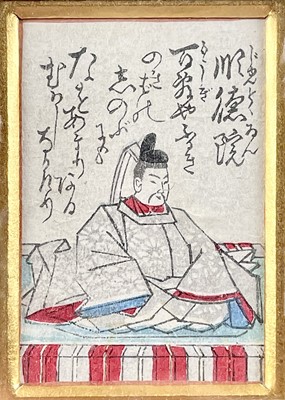 順德院
じゆんとくゐん
百敷やふるき
のきはの
志のふ
にも
なをあまりある
むかし
なりけり